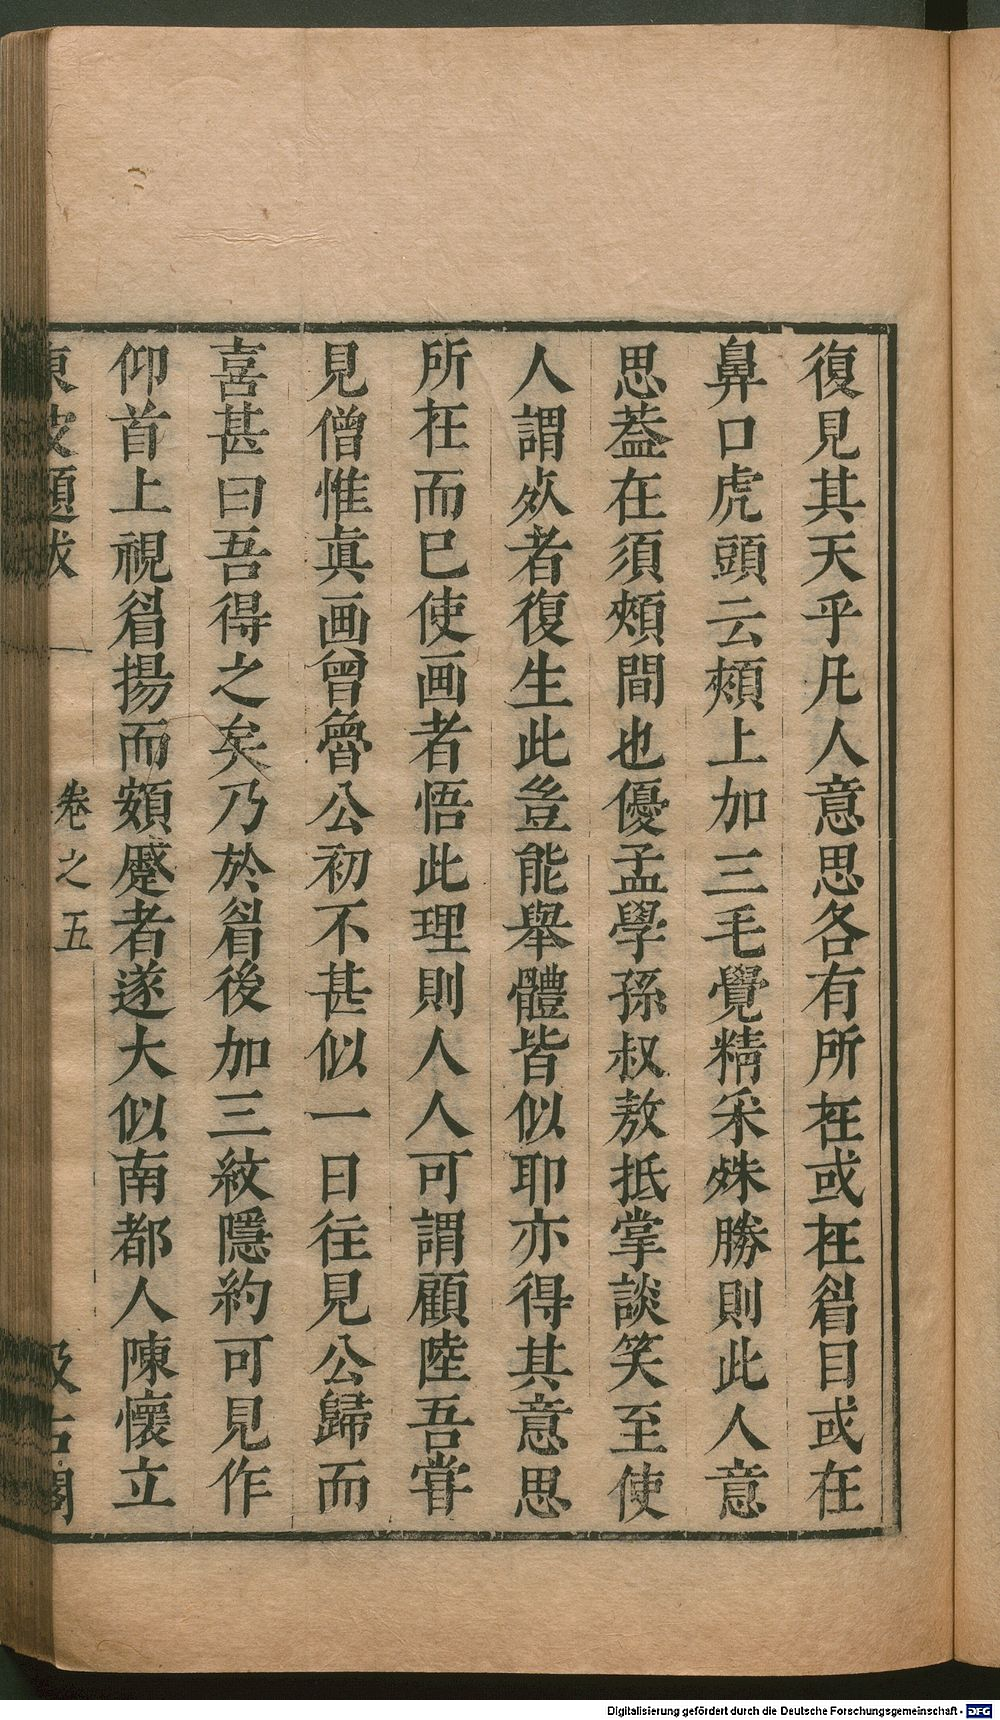 復見其天乎凡人意思各有所在或在眉目或在
鼻口虎頭云頰上加三毛覺精采殊勝則此人意
思葢在須頰間也優孟學孫叔敖抵掌談笑至使
人謂死者復生此豈能舉體皆似耶亦得其意思
所在而已使画者悟此理則人人可謂顧陸吾甞
見僧惟眞画曾魯公初不甚似一日往見公歸而
喜甚曰吾得之矣乃於眉後加三紋隱約可見作
仰首上視眉揚而頞蹙者遂大似南都人陳懷立
東坡題跋 卷之五 汲古閣
Digitalisierung gefördert durch die Deutsche Forschungsgemeinschaft - DFG